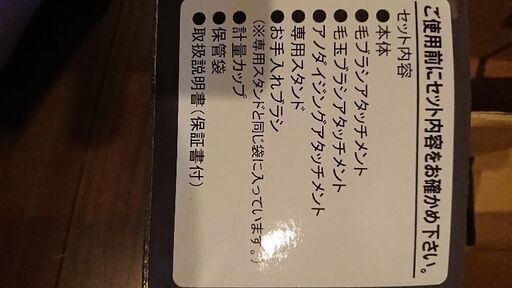 ご使用前にセット内容をお確かめ下さい。
セット内容
●本体
●毛ブラシアタッチメント
●毛玉ブラシアタッチメント
●アノダイジングアタッチメント
●専用スタンド
●お手入れブラシ
(※専用スタンドと同じ袋に入っています。)
●計量カップ
●保管袋
●取扱説明書(保証書付)